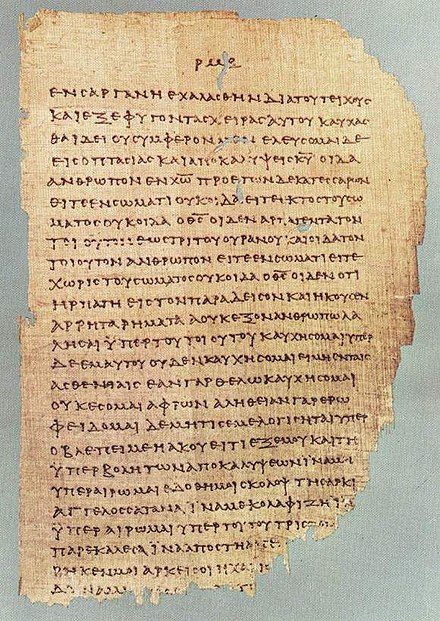 ΕΝΣΑΡΓΑΝΗΕΧΑΛΑΣΘΗΝΔΙΑΤΟΥΤΕΙΧΟΥΣ
ΚΑΙΕΞΕΦΥΓΟΝΤΑΣΧΕΙΡΑΣΑΥΤΟΥΚΑΥΧΑΣ
ΘΑΙΔΕΙΟΥΣΥΜΦΕΡΟΝΜΕΝΕΛΕΥΣΟΜΑΙΔΕ
ΕΙΣΟΠΤΑΣΙΑΣΚΑΙΑΠΟΚΑΛΥΨΕΙΣΚ̅Υ̅ΟΙΔΑ
ΑΝΘΡΩΠΟΝΕΝΧ̅Ω̅ΠΡΟΕΤΩΝΔΕΚΑΤΕΣΣΑΡΩΝ
ΕΙΤΕΕΝΣΩΜΑΤΙΟΥΚΟΙΔΑΕΙΤΕΕΚΤΟΣΤΟΥΣΩ
ΜΑΤΟΣΟΥΚΟΙΔΑΟΘ̅Σ̅ΟΙΔΕΝΑΡΠΑΓΕΝΤΑΤΟΝ
ΤΟΙΟΥΤΟΝΕΩΣΤΡΙΤΟΥΟΥΡΑΝΟΥΚΑΙΟΙΔΑΤΟΝ
ΤΟΙΟΥΤΟΝΑΝΘΡΩΠΟΝΕΙΤΕΕΝΣΩΜΑΤΙΕΙΤΕ
ΧΩΡΙΣΤΟΥΣΩΜΑΤΟΣΟΥΚΟΙΔΑΟΘ̅Σ̅ΟΙΔΕΝΟΤΙ
ΗΡΠΑΓΗΕΙΣΤΟΝΠΑΡΑΔΕΙΣΟΝΚΑΙΗΚΟΥΣΕΝ
ΑΡΡΗΤΑΡΗΜΑΤΑΑΟΥΚΕΞΟΝΑΝΘΡΩΠΩΛΑ
ΛΗΣΑΙΫΠΕΡΤΟΥΤΟΙΟΥΤΟΥΚΑΥΧΗΣΟΜΑΙΥΠΕΡ
ΔΕΕΜΑΥΤΟΥΟΥΔΕΝΚΑΥΧΗΣΟΜΑΙΕΙΜΗΕΝΤΑΙΣ
ΑΣΘΕΝΕΙΑΙΣΕΑΝΓΑΡΘΕΛΩΚΑΥΧΗΣΟΜΑΙ
ΟΥΚΕΣΟΜΑΙΑΦΡΩΝΑΛΗΘΕΙΑΝΓΑΡΕΡΩ
ΦΕΙΔΟΜΑΙΔΕΜΗΤΙΣΕΜΕΛΟΓΙΣΗΤΑΙΥΠΕΡ
ΟΒΛΕΠΕΙΜΕΗΑΚΟΥΕΙΤΙΕΞΕΜΟΥΚΑΙΤΗ
ΫΠΕΡΒΟΛΗΤΩΝΑΠΟΚΑΛΥΨΕΩΝΪΝΑΜΗ
ΥΠΕΡΑΙΡΩΜΑΙΕΔΟΘΗΜΟΙΣΚΟΛΟΨΤΗΣΑΡΚΙ
ΑΓΓΕΛΟΣΣΑΤΑΝΑΪΝΑΜΕΚΟΛΑΦΙΖΗΪΝΑ
ΫΠΕΡΑΙΡΩΜΑΙΥΠΕΡΤΟΥΤΟΥΤΡΙΣ
ΠΑΡΕΚΑΛΕΣΑΪΝΑΑΠΟΣΤΗ
ΡΗΚΕΝΜΟΙΑΡΚΕΙΣΟΙΗΧΑΡΙΣ
ΔΥΝΑΜΙΣ